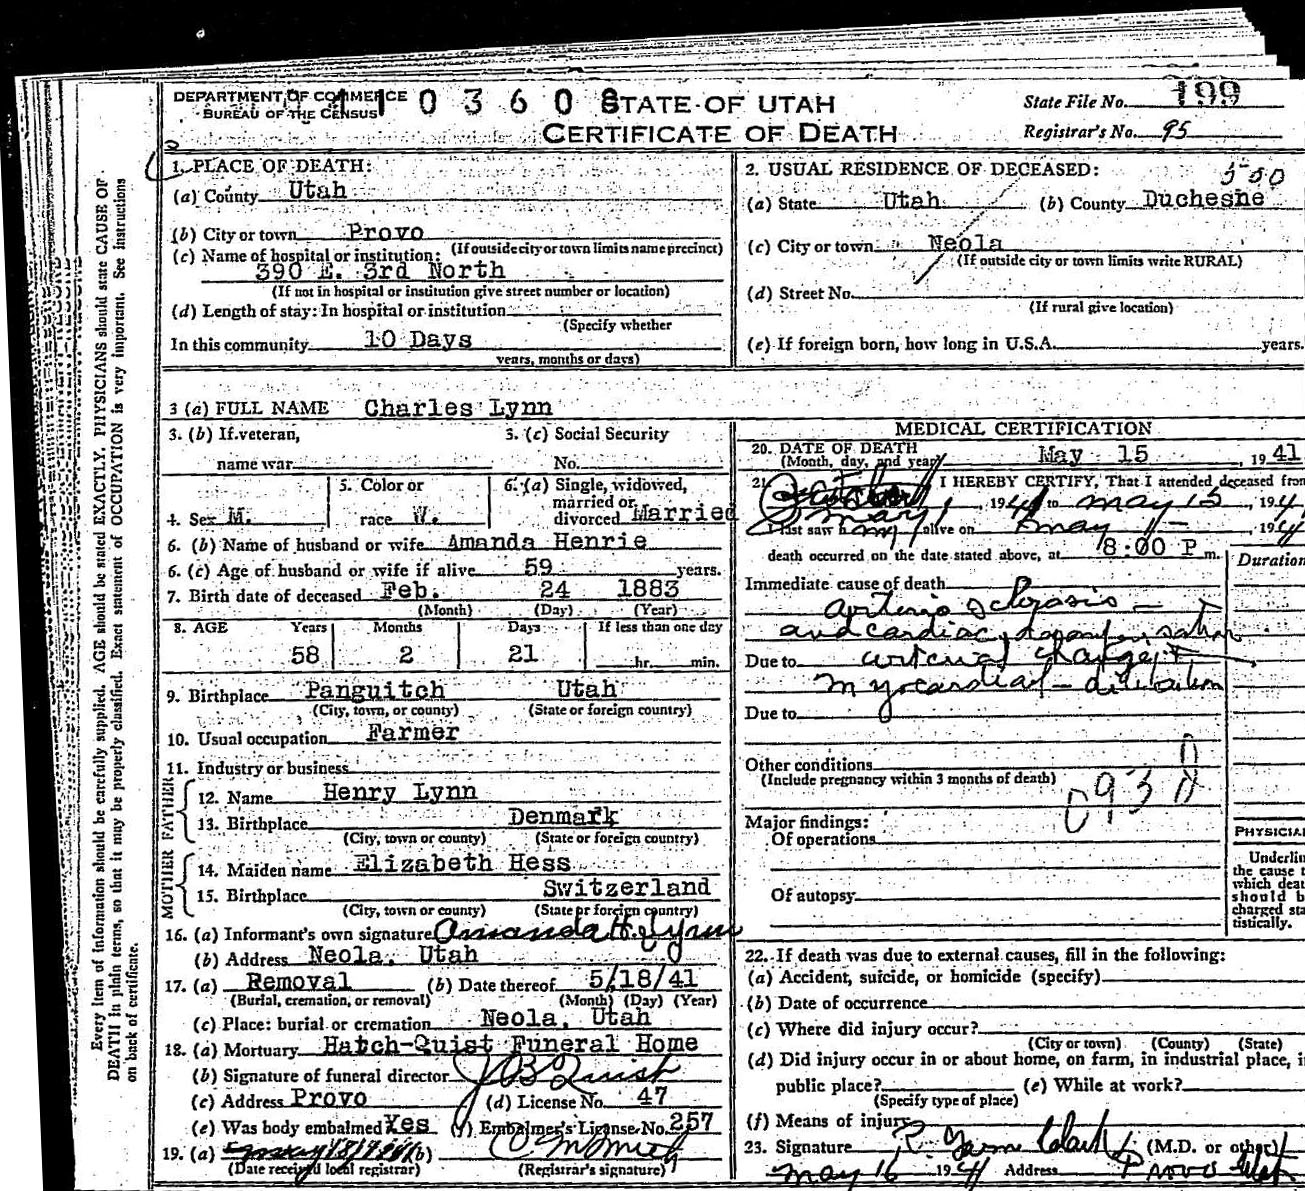 DEPARTMENT OF COMMERCE
BUREAU OF THE CENSUS
0 3 6 0 8
STATE OF UTAH
CERTIFICATE OF DEATH
State File No. 199
Registrar's No. 95
Every item of information should be carefully supplied. AGE should be stated EXACTLY. PHYSICIANS should state CAUSE OF
DEATH in plain terms, so that it may be properly classified. Exact statement of OCCUPATION is very important. See instructions
on back of certificate.
1. PLACE OF DEATH:
(a) County Utah
(b) City or town Provo
(If outside city or town limits name precinct)
(c) Name of hospital or institution:
390 E. 3rd North
(If not in hospital or institution give street number or location)
(d) Length of stay: In hospital or institution
(Specify whether
In this community 10 Days
years, months or days)
2. USUAL RESIDENCE OF DECEASED:
500
(a) State Utah (b) County Duchesne
(c) City or town Neola
(If outside city or town limits write RURAL)
(d) Street No.
(If rural give location)
(e) If foreign born, how long in U.S.A. years.
3 (a) FULL NAME Charles Lynn
3. (b) If veteran, name war
3. (c) Social Security No.
4. Sex M.
5. Color or race W.
6. (a) Single, widowed, married or divorced Married
6. (b) Name of husband or wife Amanda Henrie
6. (c) Age of husband or wife if alive 59 years.
7. Birth date of deceased Feb. 24 1883
(Month) (Day) (Year)
8. AGE Years Months Days If less than one day
58 2 21 hr. min.
9. Birthplace Panguitch Utah
(City, town, or county) (State or foreign country)
10. Usual occupation Farmer
11. Industry or business
FATHER
12. Name Henry Lynn
13. Birthplace Denmark
(City, town or county) (State or foreign country)
MOTHER
14. Maiden name Elizabeth Hess
15. Birthplace Switzerland
(City, town or county) (State or foreign country)
16. (a) Informant's own signature Amanda H. Lynn
(b) Address Neola, Utah
17. (a) Removal (b) Date thereof 5/18/41
(Burial, cremation, or removal) (Month) (Day) (Year)
(c) Place: burial or cremation Neola, Utah
18. (a) Mortuary Hatch-Quist Funeral Home
(b) Signature of funeral director J B Quist
(c) Address Provo (d) License No. 47
(e) Was body embalmed Yes (f) Embalmer's License No. 257
19. (a) (b)
(Date received local registrar) (Registrar's signature)
MEDICAL CERTIFICATION
20. DATE OF DEATH
(Month, day, and year) May 15, 1941
21. I HEREBY CERTIFY, That I attended deceased from
May 1, 1941 to May 15, 194
I last saw h alive on May, 194
death occurred on the date stated above, at 8:00 P m.
Duration
Immediate cause of death
arterio sclerosis
and cardiac
Due to arterial changes
myocardial - dilitation
Due to
Other conditions
(Include pregnancy within 3 months of death)
093
Major findings:
Of operations
Of autopsy
PHYSICIAN
Underline
the cause t
which deat
should b
charged sta
tistically.
22. If death was due to external causes, fill in the following:
(a) Accident, suicide, or homicide (specify)
(b) Date of occurrence
(c) Where did injury occur?
(City or town) (County) (State)
(d) Did injury occur in or about home, on farm, in industrial place, i
public place? (e) While at work?
(Specify type of place)
(f) Means of injury
23. Signature Clark (M.D. or other)
May 16 1941 Address Provo Utah